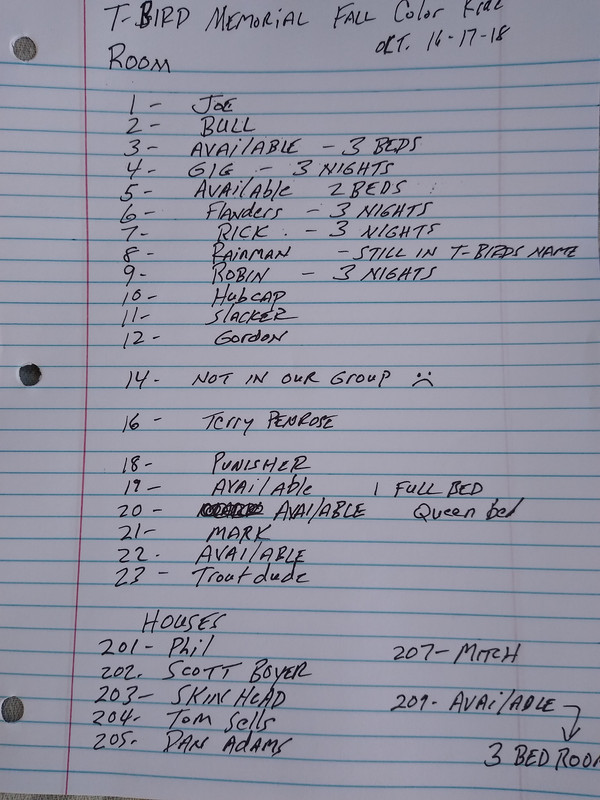 T-BIRD MEMORIAL FALL COLOR RIDE
OCT. 16-17-18
ROOM
1 - JOE
2 - BULL
3 - AVAILABLE - 3 BEDS
4 - GIG - 3 NIGHTS
5 - AVAILABLE 2 BEDS
6 - Flanders - 3 NIGHTS
7 - RICK - 3 NIGHTS
8 - RAINMAN - STILL IN T-BIRDS NAME
9 - ROBIN - 3 NIGHTS
10 - HubCAP
11 - SLACKER
12 - Gordon
14 - NOT IN OUR GROUP :(
16 - Terry PENROSE
18 - PUNISHER
19 - AVAILABLE 1 FULL BED
20 - AVAILABLE Queen bed
21 - MARK
22 - AVAILABLE
23 - Troutdude
HOUSES
201 - Phil 207 - MITCH
202. SCOTT BOYER
203 - SKINHEAD 209 - AVAILABLE
204 - Tom Sells
205 - DAN ADAMS 3 BEDROOM